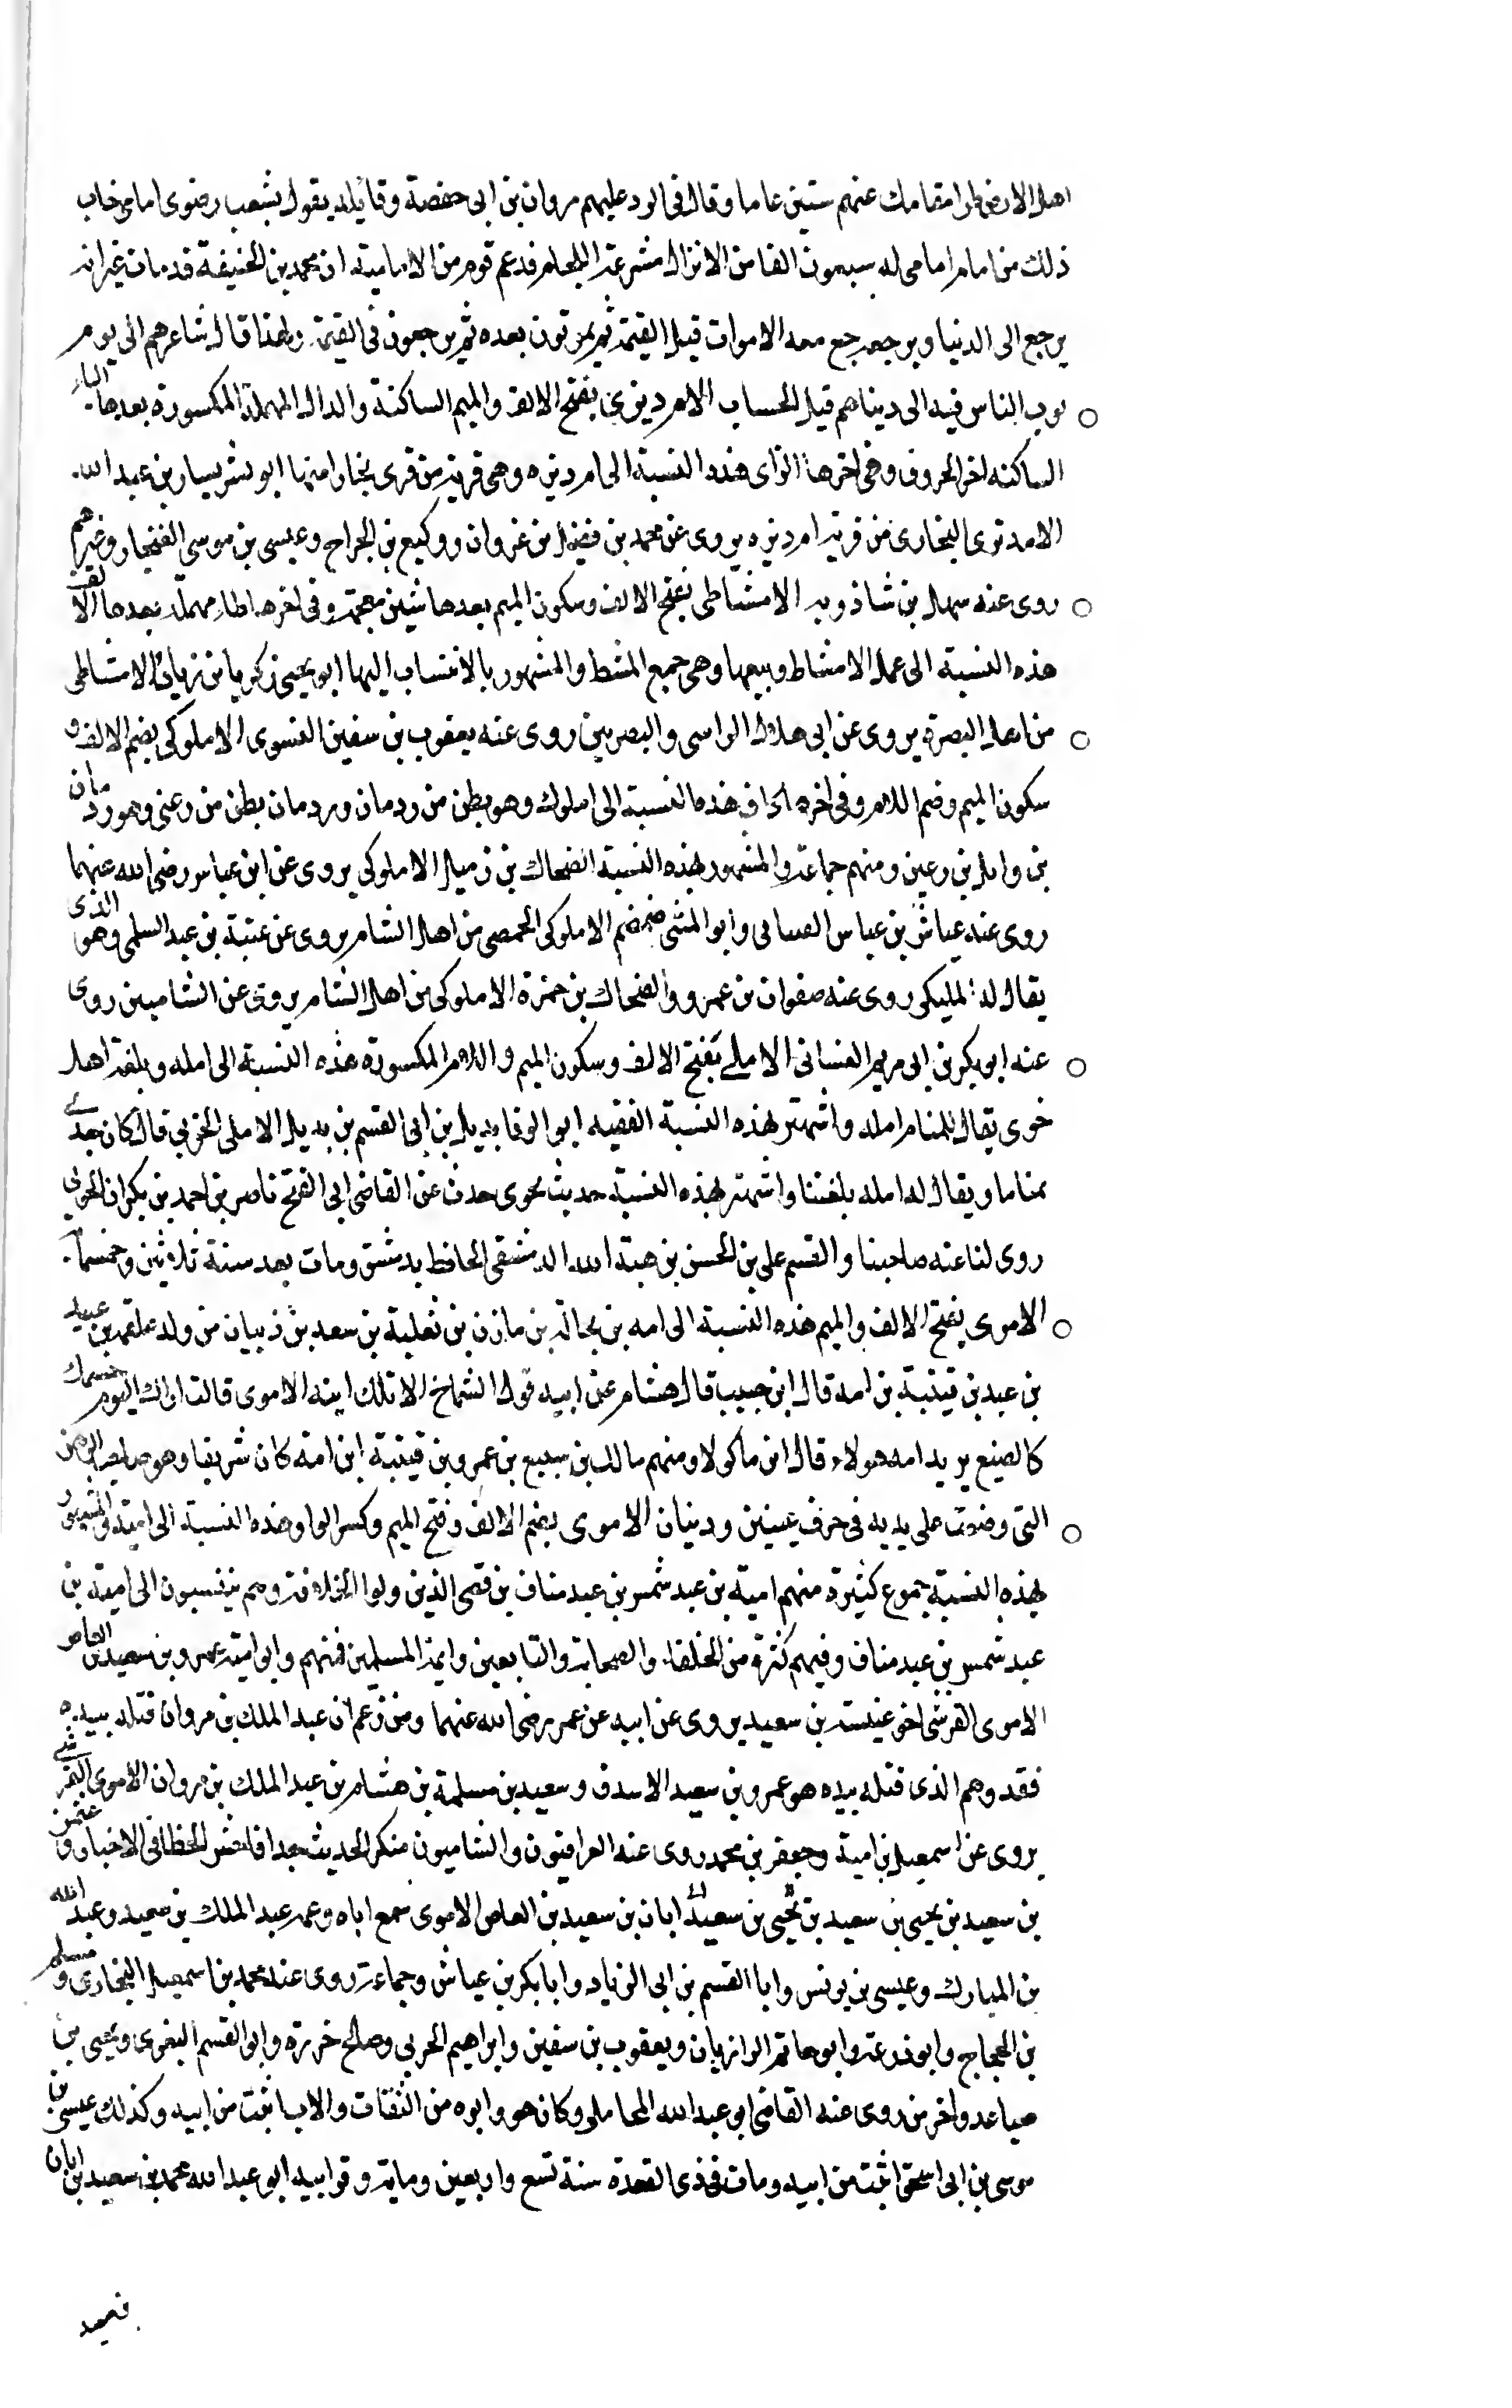 اهل الارض طرا مقامك عنهم ستين عاما وقال فى الرد عليهم مروان بن ابى حفصة وقائلة يقول بشعب رضوى امامى خاب
ذلك من امام امامى له سبعون الفا من الاتراك مشرعة اللجام فزعم قوم من الامامية ان محمد بن الحنيفة قد مات غير انه
يرجع الى الدنيا ويرجع معه الاموات قبل القيمة ثم يموتون بعده ثم يرجعون فى القيمة ولهذا قال شاعرهم الى يوم
يوب الناس فيه الى دنياهم قبل الحساب الامرديزى بفتح الالف والميم الساكنة والدال المهملة المكسورة بعدها الياء
الساكنه اخر الحروف وفى اخرها الزاى هذه النسبة الى امرديزه وهى قرية من قرى بخارا منها ابو بشر يسار بن عبد الله
الامدىزى البخارى من قرية امرديزه يروى عن محمد بن فضيل بن غزوان ووكيع بن الجراح وعيسى بن موسى الغنجار وغيرهم
روى عنه سهل بن شاذويه الامشاطى بفتح الالف وسكون الميم بعدها شين معجمة وفى اخرها طاء مهملة بعدها الالف
هذه النسبة الى عمل الامشاط وبيعها وهى جمع المشط والمشهور بالانتساب اليها ابو يحيى زكريا بن زياد الامشاطى
من اهل البصرة يروى عن ابى هلال الراسى والبصريين روى عنه يعقوب بن سفين الفسوى الاملوكى بضم الالف و
سكون الميم وضم اللام وفى اخره الكاف هذه النسبة الى املوك وهو بطن من ردمان وردمان بطن من رعين وهو ردمان
بن وايل بن رعين ومنهم جماعة والمشهور بهذه النسبة الضحاك بن زميل الاملوكى يروى عن ابن عباس رضى الله عنهما
روى عنه عياش بن عباس القتبانى وابو المثنى ضمضم الاملوكى الحمصى من اهل الشام يروى عن عتبة بن عبد السلمى وهو الذى
يقال له المليكى روى عنه صفوان بن عمرو والضحاك بن حمزة الاملوكى من اهل الشام يروى عن الشاميين روى
عنه ابو بكر بن ابى مريم الغسانى الاملى بفتح الالف وسكون الميم واللام المكسورة هذه النسبة الى امله وبلغة اهل
خوى يقال للمنام امله واشتهر بهذه النسبة الفقيه ابو الوفا بديل بن ابى القسم بن بديل الاملى الخوىى قال كان جدى
مناما ويقال له امله بلغتنا واشتهر بهذه النسبة حديث بخوى حدث عن القاضى ابى الفتح ناصر بن احمد بن بكران الخوىى
روى لنا عنه صاحبنا والقسم على بن الحسن بن هبة الله الدمشقى الحافظ بدمشق ومات بعد سنة ثلاثين وخمسمائة
الاموى بفتح الالف والميم هذه النسبة الى امه بن بجالة بن مازن بن ثعلبة بن سعد بن ذبيان من ولد علقمة بن عبيد
بن عبد بن قيتبة بن امه قال ابن حبيب قال هشام عن ابيه قول الشماخ الا تلك ابنه الاموى قالت اراك اليوم جسمك
كالصنيع يريد امه هولاء قال ابن ماكولا ومنهم مالك بن سبيع بن عمرو بن قيتبة ابن امه كان شريفا وهو صاحب الرهن
التى وضعت على يديه فى حرف عبس وذبيان الاموى بضم الالف وفتح الميم وكسر الواو هذه النسبة الى امية والمشهور
بهذه النسبة جموع كثيرة منهم امية بن عبد شمس بن عبد مناف بن قصى الذين ولوا الخلافة وهم ينتسبون الى امية بن
عبد شمس بن عبد مناف وفيهم كثرة من الخلفاء والصحابة والتابعين وايمة المسلمين فمنهم وابو امية عمرو بن سعيد بن العاص
الاموى القرشى اخو عنبسة بن سعيد يروى عن ابيه عن عمر رضى الله عنهما ومن زعم ان عبد الملك بن مروان قتله بيده
فقد وهم الذى قتله بيده هو عمرو بن سعيد الاسدق وسعيد بن مسلمة بن هشام بن عبد الملك بن مروان الاموى القرشى
يروى عن اسمعيل بن امية وجعفر بن محمد روى عنه العراقيون والشاميون منكر الحديث جدا فاحش الخطا فى الاخبار و عثمن
بن سعيد بن يحيى بن سعيد بن يحيى بن سعيد ابان بن سعيد بن العاص الاموى سمع اباه وعمه عبد الملك بن سعيد وعبد الله
بن المبارك وعيسى بن يونس وابا القسم بن ابى الزياد وابا بكر بن عياش وجماعة روى عنه محمد بن اسمعيل البخارى و مسلم
بن الحجاج وابو زرعة وابو حاتم الرازيان ويعقوب بن سفين وابراهيم الحربى وصالح خررة وابو القسم البغوى ويحيى بن
صاعد واخر من روى عنه القاضى ابو عبد الله المحاملى وكان هو وابوه من الثقات والاب اثبت من ابيه وكذلك عيسى بن
موسى بن ابى اسحق اثبت من ابيه ومات فى ذى القعدة سنة تسع واربعين وماية وقرابيه ابو عبد الله محمد بن سعيد بن ابان